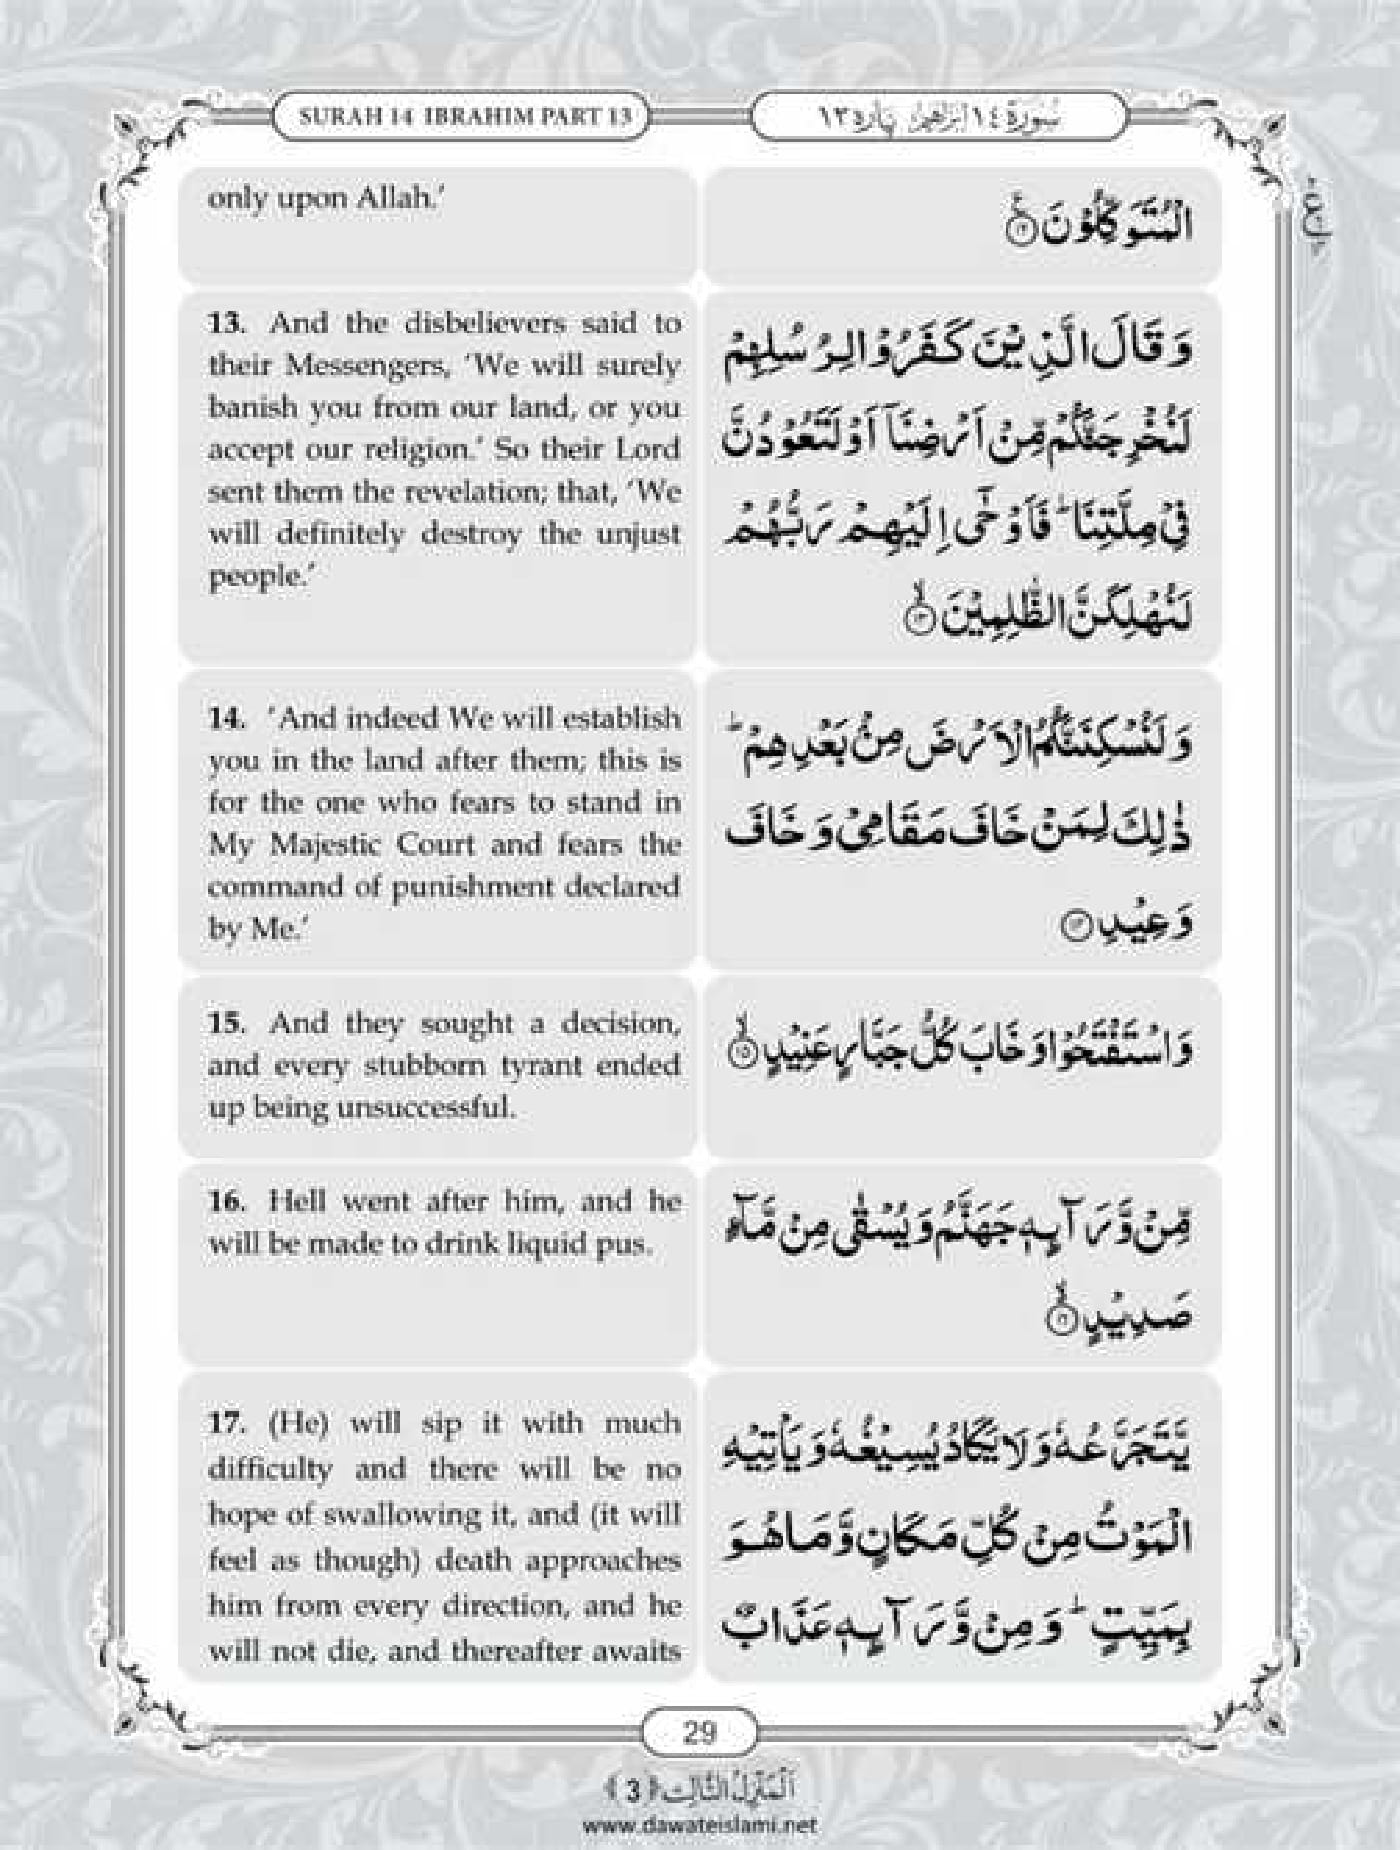 SURAH 14 IBRAHIM PART 13
سُوْرَةٌ ١٤ اِبْرٰهِيْمُ پَارَه ١٣
only upon Allah.’
الْمُتَوَكِّلُوْنَ ۠﴿۱۲﴾
13. And the disbelievers said to
their Messengers, ‘We will surely
banish you from our land, or you
accept our religion.’ So their Lord
sent them the revelation; that, ‘We
will definitely destroy the unjust
people.’
وَ قَالَ الَّذِیْنَ كَفَرُوْا لِرُسُلِهِمْ
لَنُخْرِجَنَّكُمْ مِّنْ اَرْضِنَاۤ اَوْ لَتَعُوْدُنَّ
فِیْ مِلَّتِنَا ؕ فَاَوْحٰۤی اِلَیْهِمْ رَبُّهُمْ
لَنُهْلِكَنَّ الظّٰلِمِیْنَ ۙ﴿۱۳﴾
14. ‘And indeed We will establish
you in the land after them; this is
for the one who fears to stand in
My Majestic Court and fears the
command of punishment declared
by Me.’
وَ لَنُسْكِنَنَّكُمُ الْاَرْضَ مِنْۢ بَعْدِهِمْ ؕ
ذٰلِكَ لِمَنْ خَافَ مَقَامِیْ وَ خَافَ
وَعِیْدِ ﴿۱۴﴾
15. And they sought a decision,
and every stubborn tyrant ended
up being unsuccessful.
وَ اسْتَفْتَحُوْا وَ خَابَ كُلُّ جَبَّارٍ عَنِیْدٍ ۙ﴿۱۵﴾
16. Hell went after him, and he
will be made to drink liquid pus.
مِّنْ وَّرَآىِٕهٖ جَهَنَّمُ وَ یُسْقٰی مِنْ مَّآءٍ
صَدِیْدٍ ۙ﴿۱۶﴾
17. (He) will sip it with much
difficulty and there will be no
hope of swallowing it, and (it will
feel as though) death approaches
him from every direction, and he
will not die, and thereafter awaits
یَّتَجَرَّعُهٗ وَ لَا یَكَادُ یُسِیْغُهٗ وَ یَاْتِیْهِ
الْمَوْتُ مِنْ كُلِّ مَكَانٍ وَّ مَا هُوَ
بِمَیِّتٍ ؕ وَ مِنْ وَّرَآىِٕهٖ عَذَابٌ
29
اَلْمَنْزِلُ الثَّالِث ﴿3﴾
www.dawateislami.net